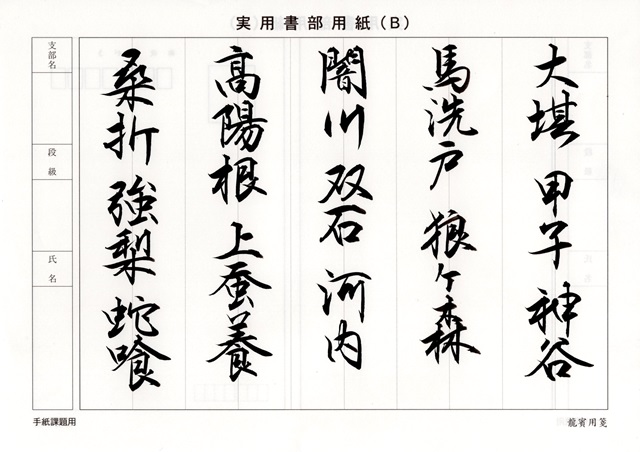 実用書部用紙(B)
大堪 甲子 神谷
馬洗戸 狼ヶ森
闇川 双石 河内
高陽根 上蚕養
桑折 強梨 蛇喰
支部名
段級
氏名
手紙課題用
龍賓用箋